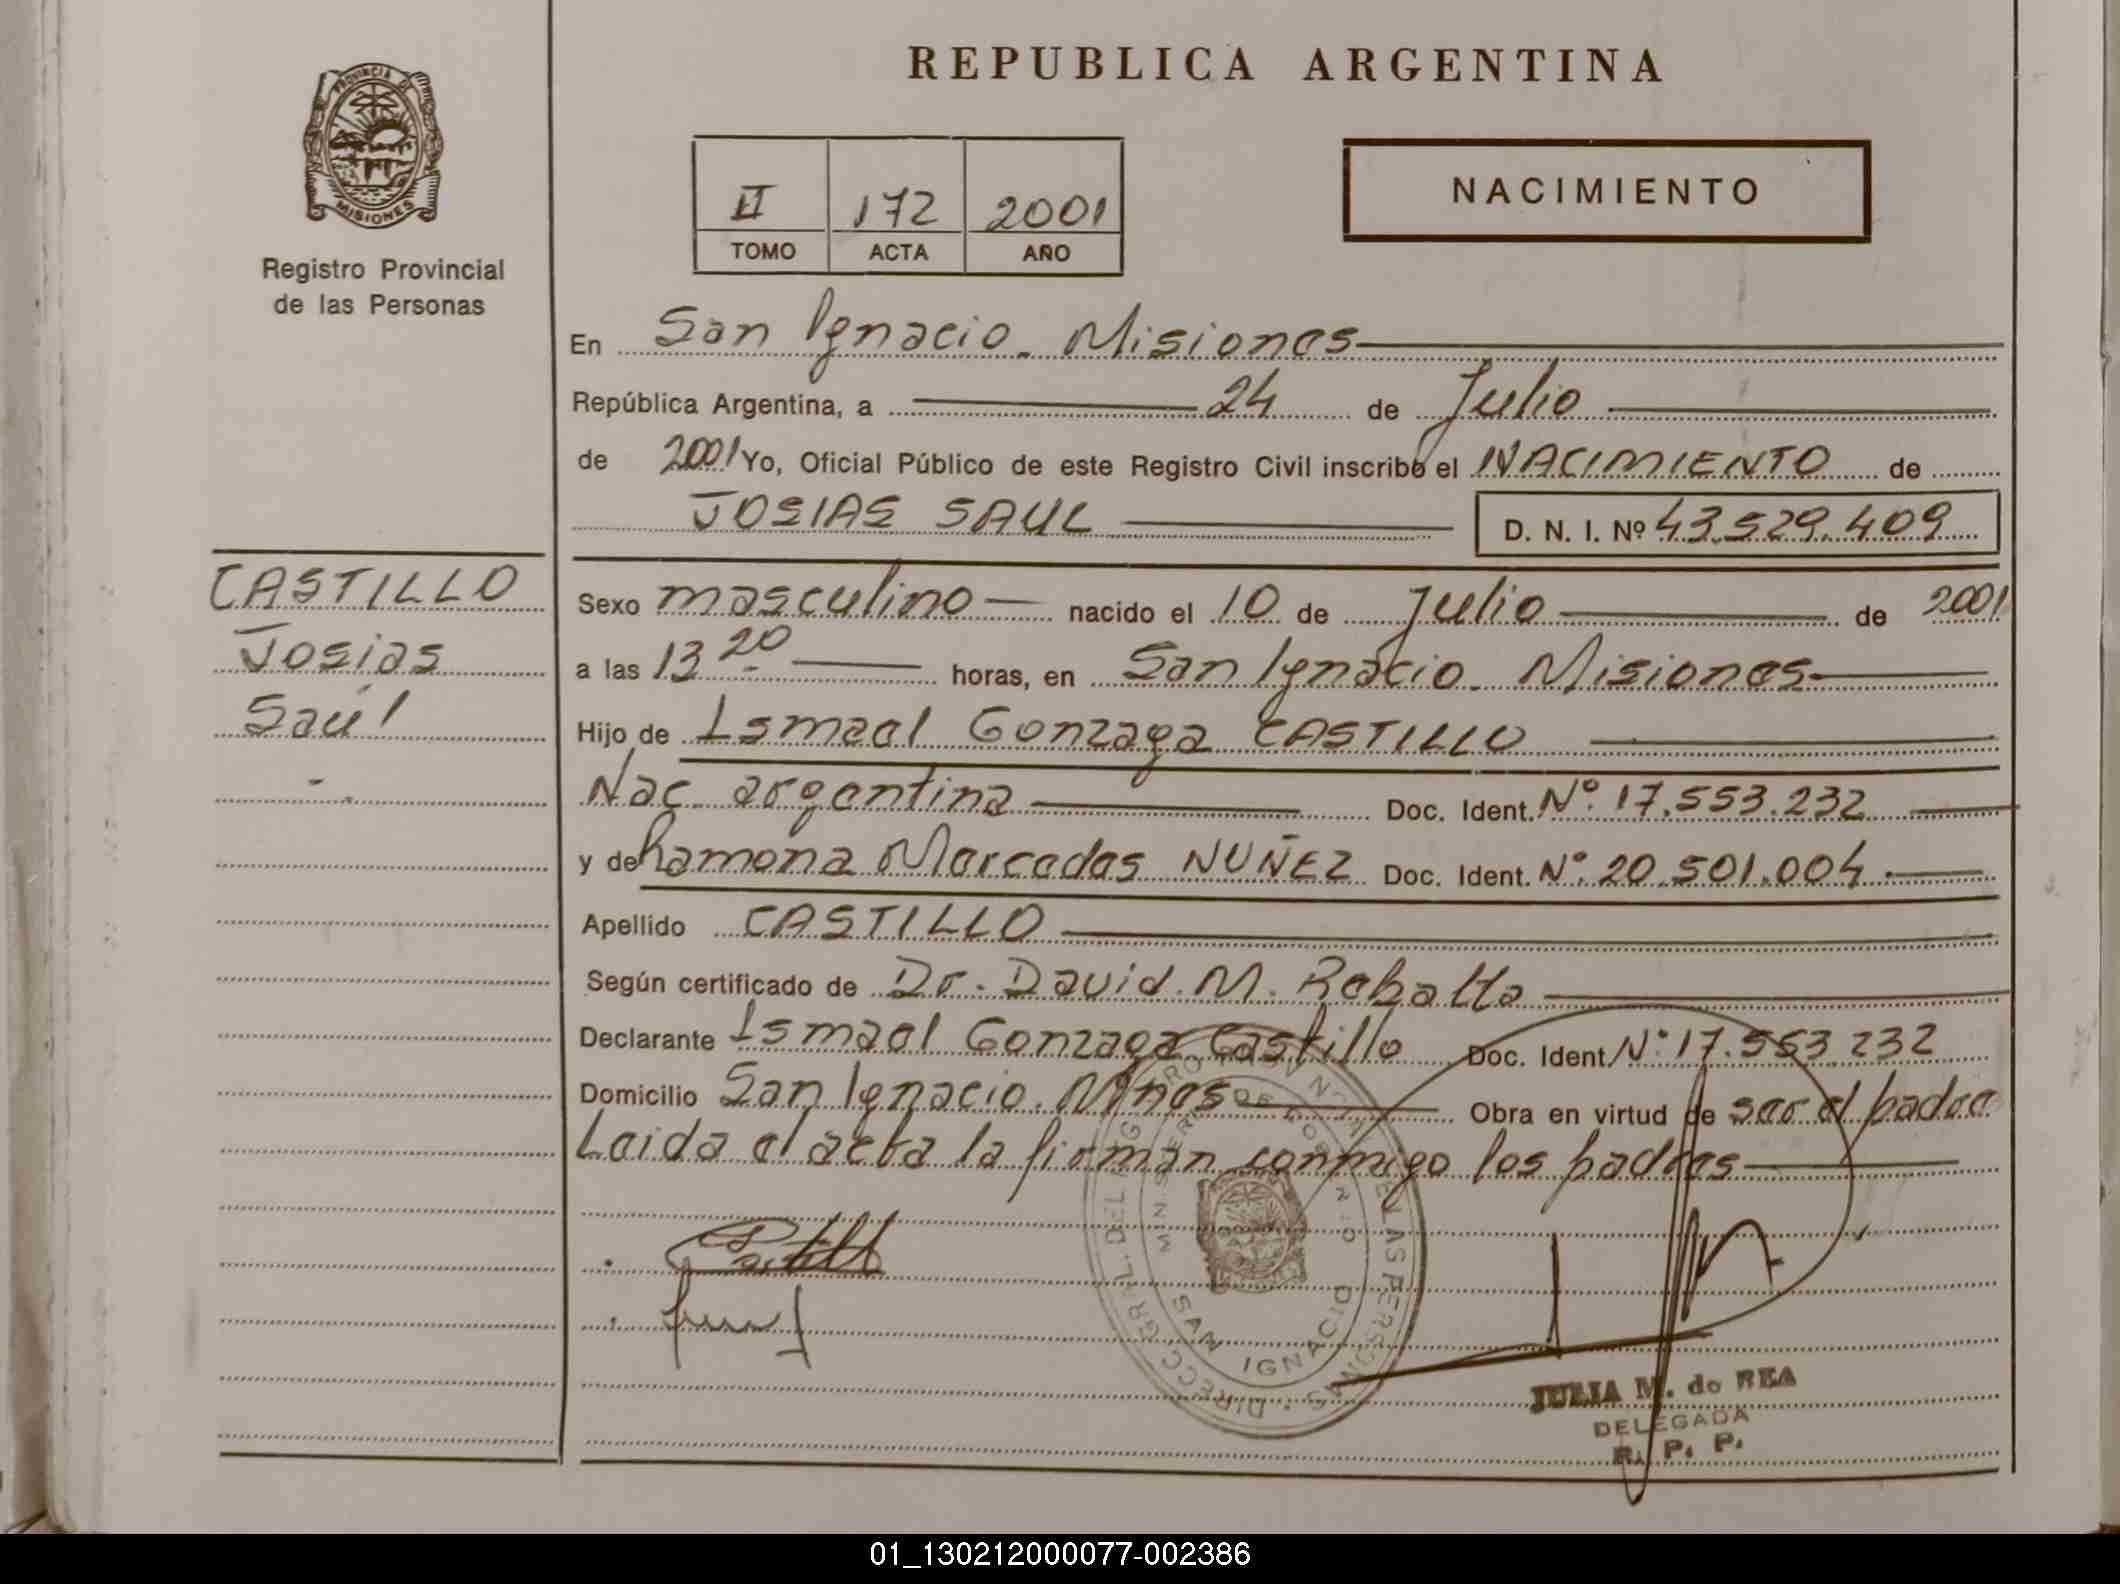 REPUBLICA ARGENTINA
PROVINCIA DE
MISIONES
Registro Provincial
de las Personas
II 172 2001
TOMO ACTA AÑO
NACIMIENTO
En San Ignacio - Misiones
República Argentina, a 24 de Julio
de 2001 Yo, Oficial Público de este Registro Civil inscribo el NACIMIENTO de
JOSIAS SAUL D. N. I. Nº 43.529.409
CASTILLO
Josias
Saúl
Sexo masculino nacido el 10 de Julio de 2001
a las 13 20 horas, en San Ignacio - Misiones
Hijo de Ismael Gonzaga CASTILLO
Nac. argentina Doc. Ident. Nº 17.553.232
y de Ramona Mercedes NUÑEZ Doc. Ident. Nº 20.501.004
Apellido CASTILLO
Según certificado de Dr. David. M. Rebatta
Declarante Ismael Gonzaga Castillo Doc. Ident. Nº 17.553.232
Domicilio San Ignacio. Mnes Obra en virtud de ser el padre
Leida el acta la firman conmigo los padres
DIRECC. GRAL. DEL REGISTRO PROVINCIAL DE LAS PERSONAS
MINISTERIO DE GOBIERNO
SAN IGNACIO
JULIA M. de REA
DELEGADA
R. P. P.
01_130212000077-002386